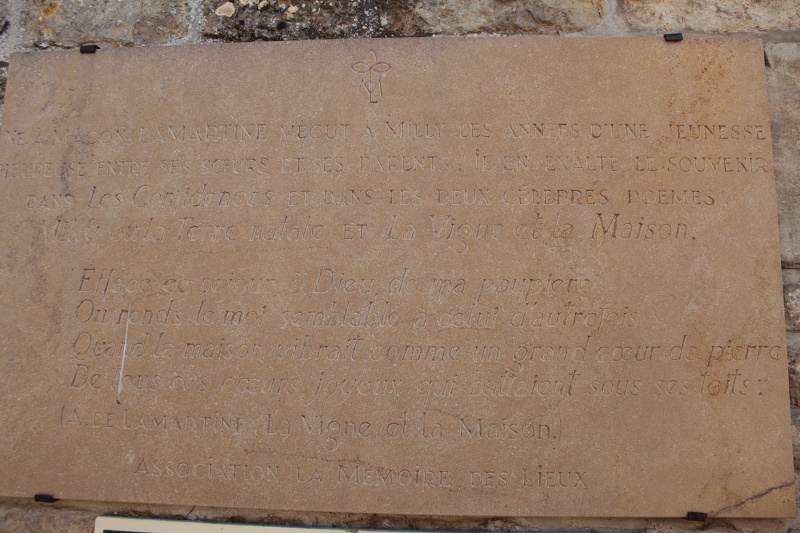 NE A MACON, LAMARTINE VECUT A MILLY LES ANNEES D'UNE JEUNESSE
HEUREUSE ENTRE SES SŒURS ET SES PARENTS. IL EN EXALTE LE SOUVENIR
DANS Les Confidences ET DANS LES DEUX CÉLEBRES POEMES:
Milly ou la Terre natale ET La Vigne et la Maison:
Efface ce sejour, ô Dieu, de ma paupiere
Ou rends-le moi semblable a celui d'autrefois
Quand la maison vibrait comme un grand cœur de pierre
De tous ces cœurs joyeux qui battaient sous ses toits:
(A. DE LAMARTINE, La Vigne et la Maison.)
ASSOCIATION LA MEMOIRE DES LIEUX